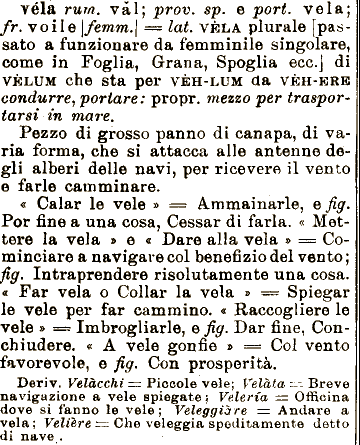 véla rum. văl; prov. sp. e port. vela;
fr. voile [femm.] = lat. VÊLA plurale [pas-
sato a funzionare da femminile singolare,
come in Foglia, Grana, Spoglia ecc.] di
VÊLUM che sta per VÈH-LUM da VÈH-ERE
condurre, portare: propr. mezzo per traspor-
tarsi in mare.
Pezzo di grosso panno di canapa, di va-
ria forma, che si attacca alle antenne de-
gli alberi delle navi, per ricevere il vento
e farle camminare.
« Calar le vele » = Ammainarle, e fig.
Por fine a una cosa, Cessar di farla. « Met-
tere la vela » e « Dare alla vela » = Co-
minciare a navigare col benefizio del vento;
fig. Intraprendere risolutamente una cosa.
« Far vela o Collar la vela » = Spiegar
le vele per far cammino. « Raccogliere le
vele » = Imbrogliarle, e fig. Dar fine, Con-
chiudere. « A vele gonfie » = Col vento
favorevole, e fig. Con prosperità.
Deriv. Velàcchi = Piccole vele; Velàta = Breve
navigazione a vele spiegate; Velería = Officina
dove si fanno le vele; Veleggiàre = Andare a
vela; Velière = Che veleggia speditamente detto
di nave.